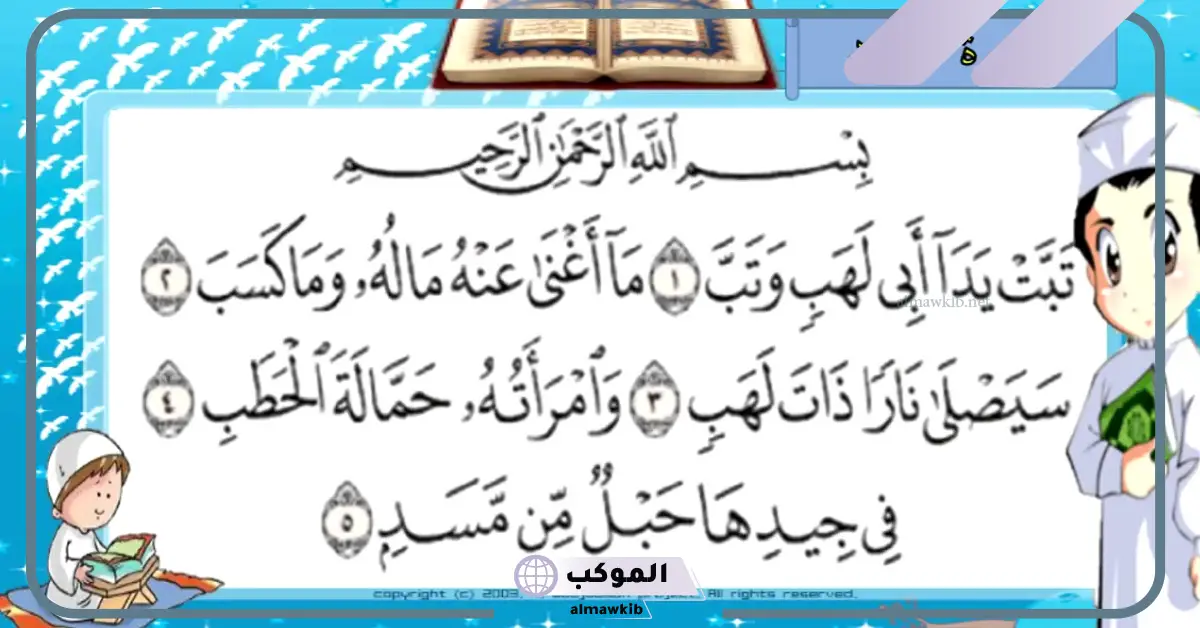 بِسْمِ ٱللَّهِ ٱلرَّحْمَٰنِ ٱلرَّحِيمِ
تَبَّتْ يَدَآ أَبِى لَهَبٍ وَتَبَّ ١ مَآ أَغْنَىٰ عَنْهُ مَالُهُۥ وَمَا كَسَبَ ٢
almawkib.net
سَيَصْلَىٰ نَارًا ذَاتَ لَهَبٍ ٣ وَٱمْرَأَتُهُۥ حَمَّالَةَ ٱلْحَطَبِ ٤
فِى جِيدِهَا حَبْلٌ مِّن مَّسَدٍۭ ٥
الموكب
copyright (c) 2009, project. All rights reserved.
almawkib